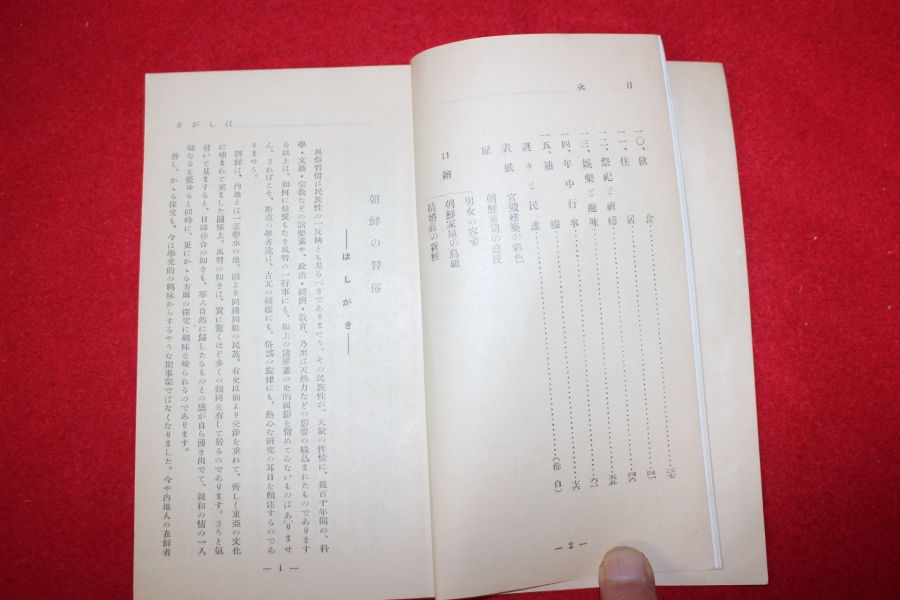 目次
一〇、飲食……三七
一一、住居……四一
一二、祭祀と祈禱……四六
一三、娯樂と趣味……五五
一四、年中行事……六二
一五、補綴……六六
謎々と民謠……(餘白)
表紙 宮殿建築の彩色
扉 朝鮮簞笥の意匠
口繪
男女の容姿
朝鮮家屋の鳥瞰
結婚當日の新粧
— 2 —
はしがき
朝鮮の習俗
——はしがき——
風俗習慣は民族性の一反映とも見るべきでありませう。その民族性が、天賦の性情に、幾百千年間の、科
學・文藝・宗教などの諸要素や、政治・經濟・敎育、乃至は天然力などの影響の織込まれたものであります
る以上は、如何に些愛もなき風習の一行事にも、如上の諸要素の史的面影を留めてゐないものはありませ
ん。さればこそ、斯道の學者達は、古瓦の模樣にも、俗謠の旋律にも、熱心な硏究の耳目を傾注するのであ
りませう。
朝鮮は、內地とは一葦帶水の地、固より同種同根の民族、有史以前より交渉を重ねて、齊しく東亞の文化
に哺まれて來ました關係上、風習の如きは、實に驚くほど多くの類同を有して居るのであります。さうと氣
付いて見ますると、日韓併合の如きも、寧ろ自然に歸したるものとの感が自ら湧き出でて、親和の情の一入
切なるを覺ゆると同時に、更にかゝる方面の探究に興味を唆られるのであります。
併し、かゝる探究も、今は學究的の興味からするやうな閑事業ではなくなりました。今や內地人の在鮮者
— 1 —